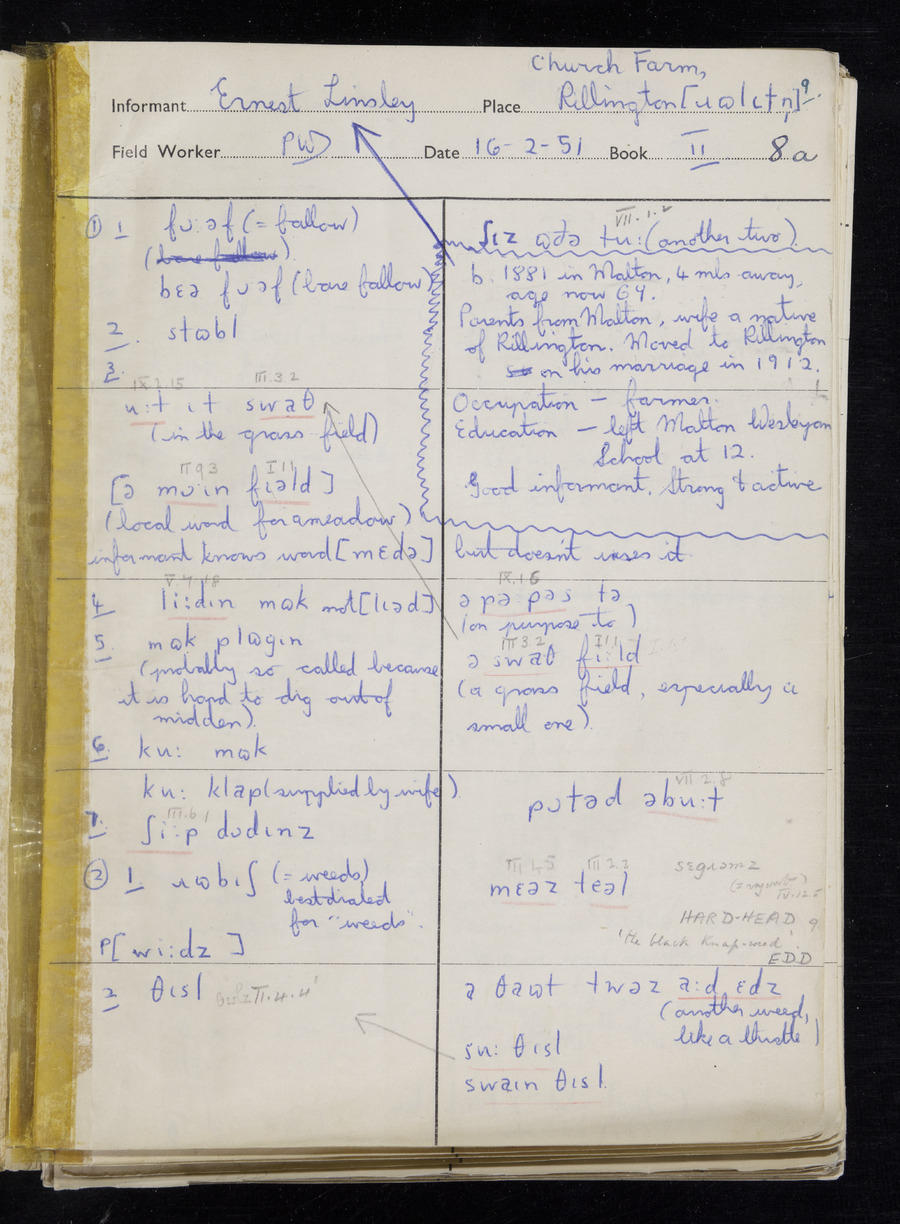 Church Farm,
Informant Ernest Linsley Place Rillington [ɹɷlɩtn̩]
Field Worker PWD Date 16-2-51 Book II 8a
① 1 fʋːəf (= fallow)
bɛə fʋəf (bare fallow)
2. stɷbl
3.
IX.2.15 III.3.2
uːt ɩt swaθ
(in the grass field)
II 9 3 I 1 1
[ə mʋɩn fɩəld]
(local word for a meadow)
informant knows word [mɛdə]
V.7.18
4 liːdɩn mɷk not [lɩəd]
5. mɷk plɷgɩn
(probably so called because
it is hard to dig out of
midden).
6. kuː mɷk
kuː klap (supplied by wife).
III.6.1
7. ʃiːp dʋdɩnz
② 1 ɹɷbɩʃ (= weeds)
best dialect
for "weeds".
P[wiːdz]
2 θɩsl II.4.4
VII.1.2
ʃɩz ɷðə tuː (another two).
b. 1881 in Malton, 4 mls away,
age now 69.
Parents from Malton, wife a native
of Rillington. Moved to Rillington
on his marriage in 1912.
Occupation – farmer.
Education – left Malton Wesleyan
School at 12.
Good informant. Strong & active
but doesn't uses it
IX.1 6
ə pə pəs tə
(on purpose to)
III 3 2 I 1 1
ə swaθ fiːld
(a grass field, especially a
small one).
VII.2.8
pʋtəd əbuːt
III 1.5 III 2.2
mɛəz tɛəl
sɛgɹəmz
(= ragwort)
IV.12.5
HARD-HEAD 9
'the black knap-weed'
EDD
a θaɷt twəz aːd ɛdz
(another weed,
like a thistle)
suː θɩsl
swaɩn θɩsl